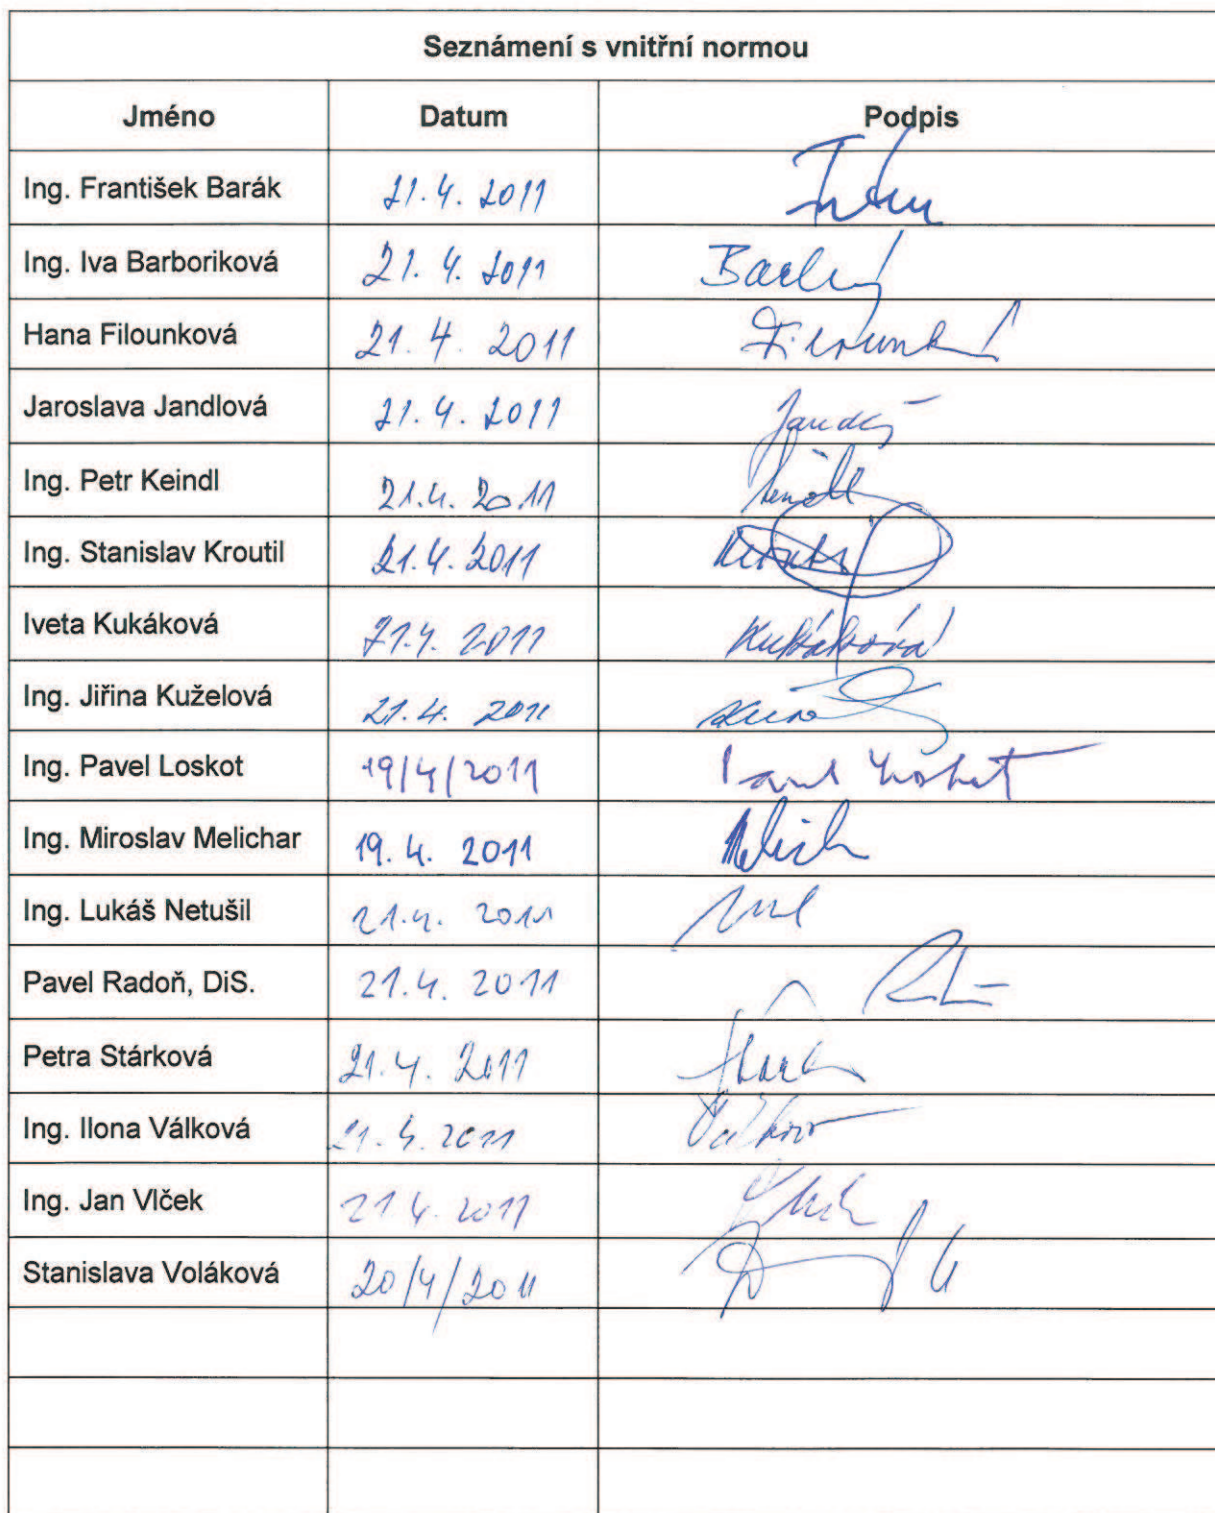 Seznámení s vnitřní normou
Jméno Datum Podpis
Ing. František Barák 21.4.2011
Ing. Iva Barboriková 21.4.2011
Hana Filounková 21.4.2011
Jaroslava Jandlová 21.4.2011
Ing. Petr Keindl 21.4.2011
Ing. Stanislav Kroutil 21.4.2011
Iveta Kukáková 21.4.2011 Kukáková
Ing. Jiřina Kuželová 21.4.2011
Ing. Pavel Loskot 19/4/2011 Pavel Loskot
Ing. Miroslav Melichar 19.4.2011
Ing. Lukáš Netušil 21.4.2011
Pavel Radoň, DiS. 21.4.2011
Petra Stárková 21.4.2011
Ing. Ilona Válková 21.4.2011
Ing. Jan Vlček 21 4.2011
Stanislava Voláková 20/4/2011